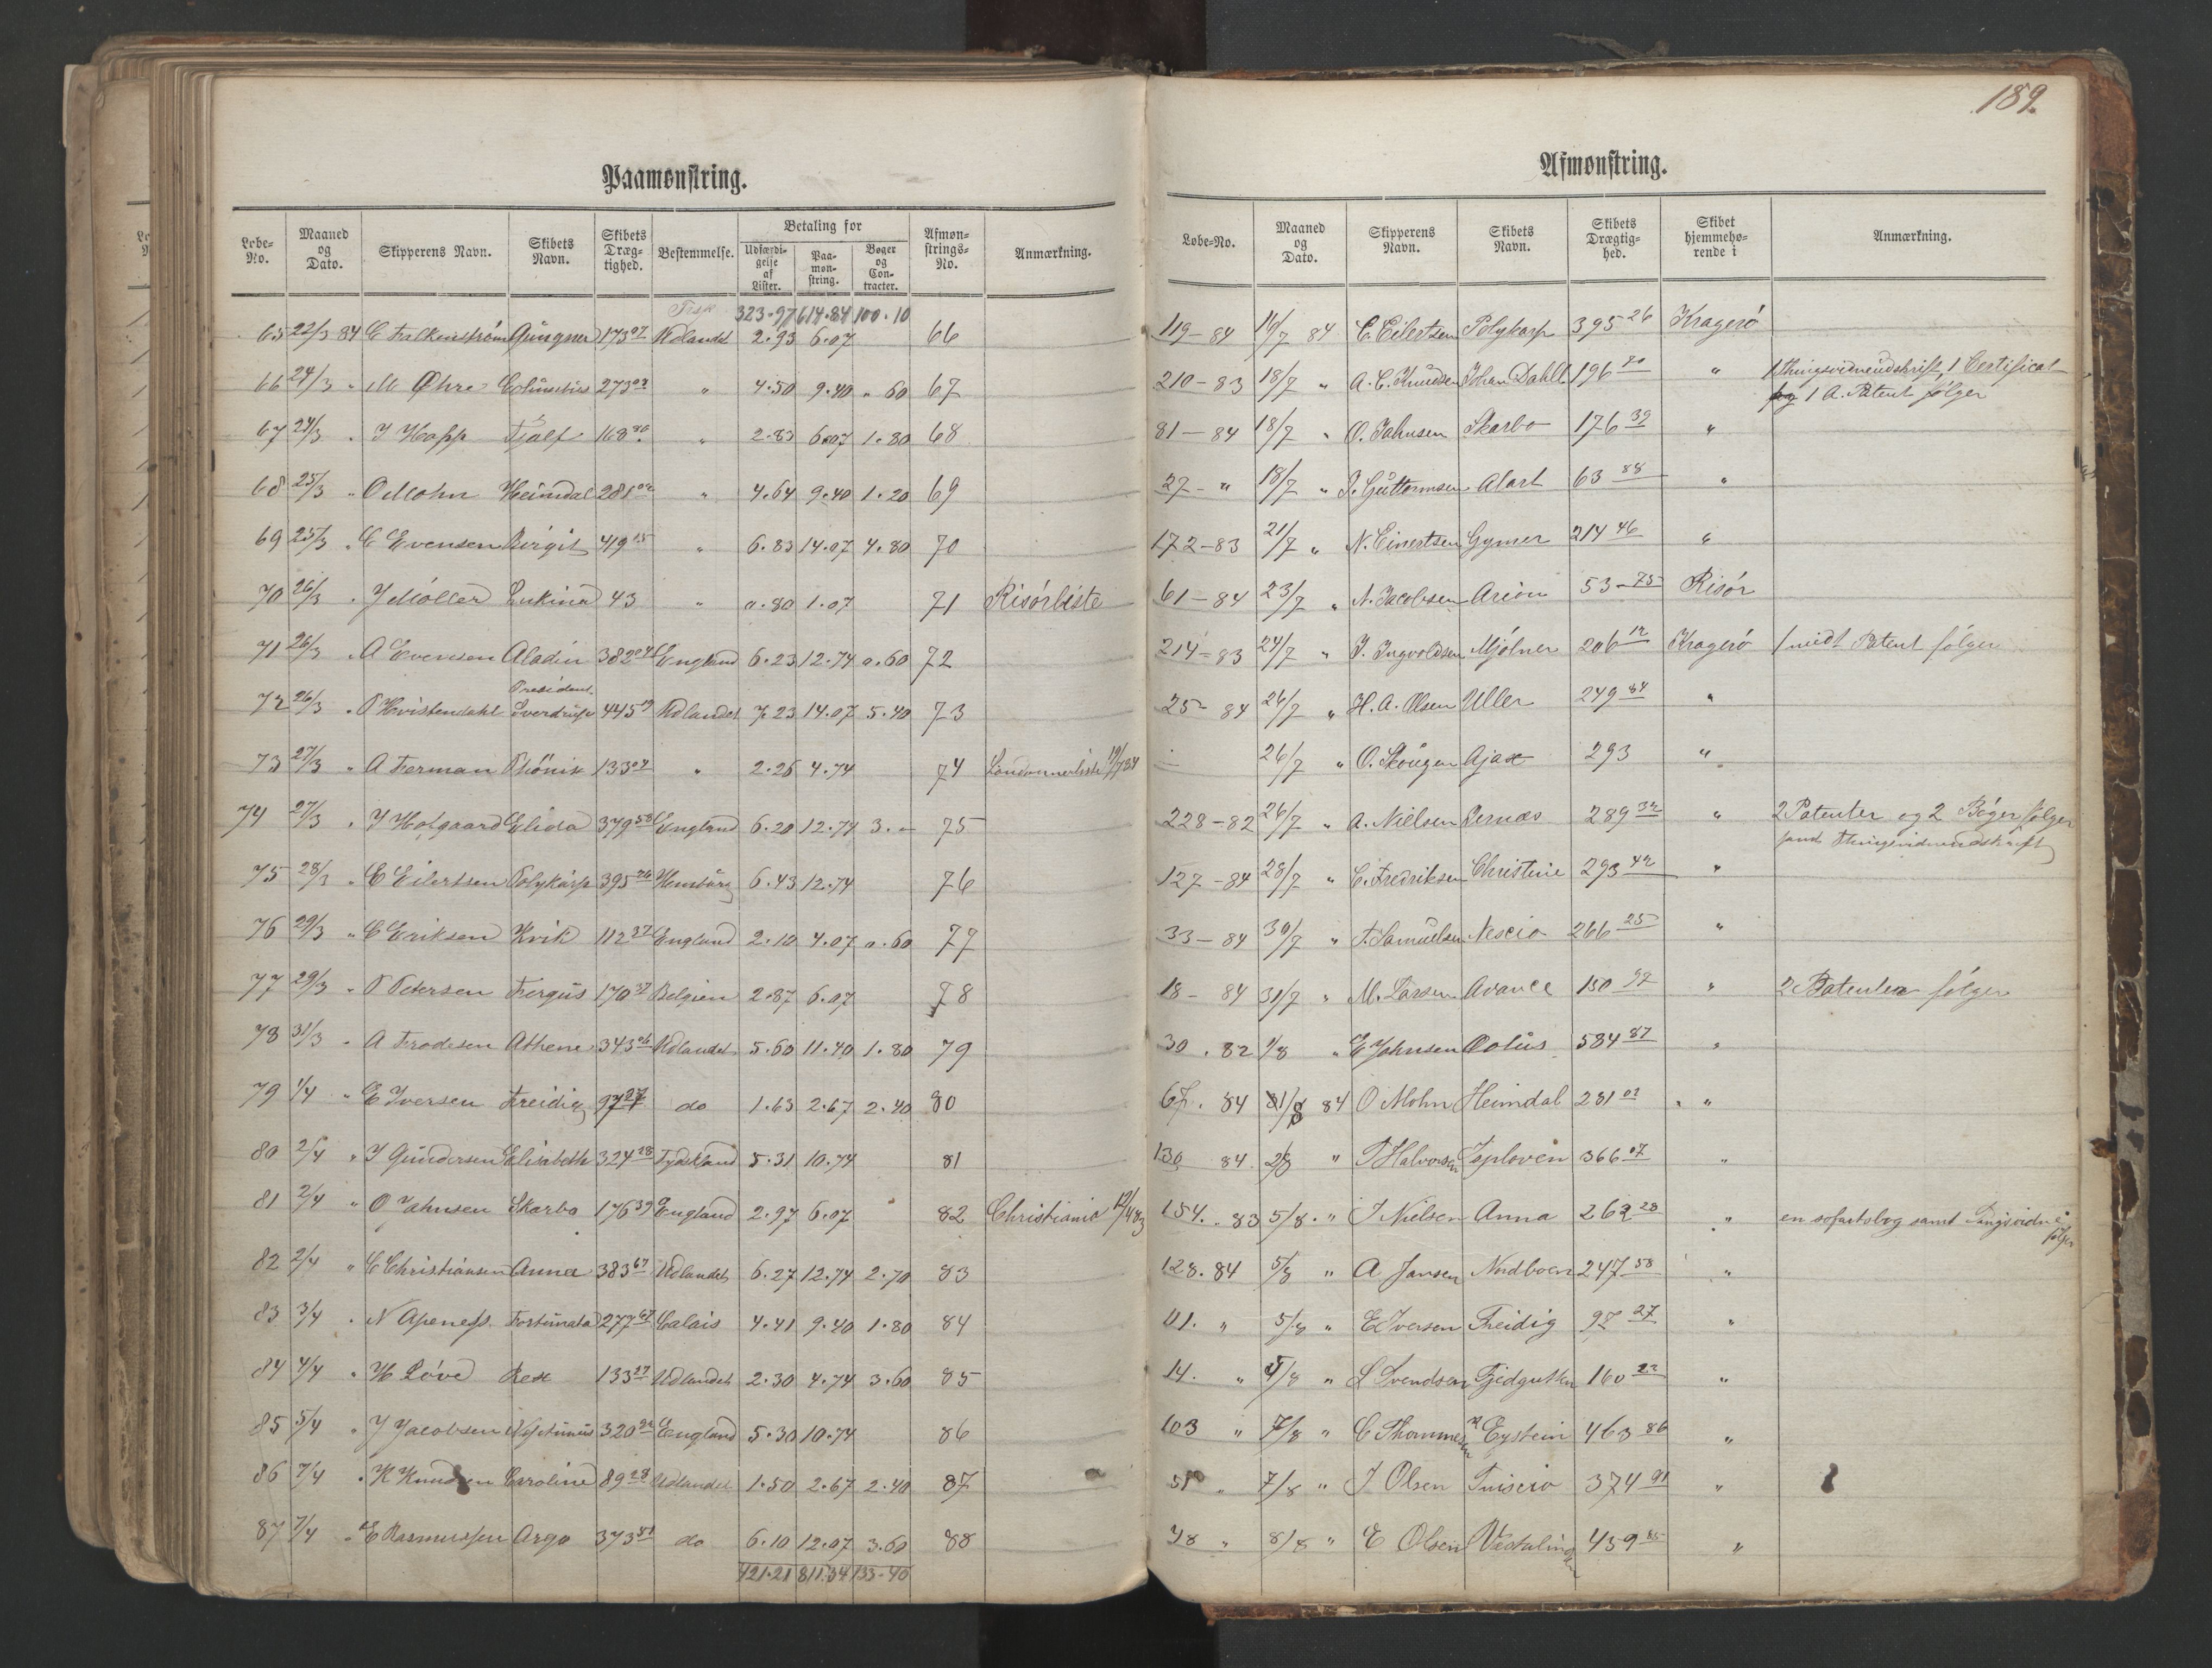 189.
Paamønstring.
Løbe-No. | Maaned og Dato. | Skipperens Navn. | Skibets Navn. | Skibets Dræg-tighed. | Bestemmelse. | Betaling for | Udfærdi-gelse af Lister. | Paa-møn-string. | Bøger og Con-tracter. | Afmøn-strings-No. | Anmærkning.
323.97 614.84 100.10
65 22/3 84 C Falkenstrøm Gungner 173 07 Udlandet 2.93 6.07 66
66 24/3 " M Øhre Columbus 273 03 " 4.50 9.40 ". 60 67
67 24/3 " J Happ Fjalf 168 80 " 2.83 6.07 1.80 68
68 25/3 " O Mohn Heimdal 281 02 " 4.64 9.40 1.20 69
69 25/3 " C Evensen Birgit 419 15 " 6.83 14.07 4.80 70
70 26/3 " J Møller Erkina 43 " 0.80 1.07 71 Risørliste
71 26/3 " A Evensen Aladin 382 04 England 6.23 12.74 0.60 72
72 26/3 " P Hvistendahl President Sverdrup 445 59 Udlandet 7.23 14.07 5.40 73
73 27/3 " A Ferman Phønix 133 04 " 2.26 4.74 74 19/7 84
74 27/3 " J Holgaard Elida 379 58 England 6.20 12.74 3.- 75
75 28/3 " C Eilertsen Polykarp 395 26 Hamburg 6.43 12.74 76
76 29/3 " C Eriksen Kvik 112 37 England 2.10 4.07 0.60 77
77 29/3 " P Petersen Fergus 170 37 Belgien 2.87 6.07 78
78 31/3 " A Frodesen Athene 343 06 Udlandet 5.60 11.40 1.80 79
79 1/4 " E Iversen Freidig 97 27 do 1.63 2.67 2.40 80
80 2/4 " J Gundersen Elisabeth 324 28 Tydskland 5.31 10.74 81
81 2/4 " O Jahnsen Skarbo 176 39 England 2.97 6.07 82 Christiania 12/4 83
82 2/4 " C Christiansen Anna 383 67 Udlandet 6.27 12.74 2.70 83
83 3/4 " N Apeness Fortunata 277 67 Calais 4.41 9.40 1.80 84
84 4/4 " H Løvd Rex 133 27 Udlandet 2.30 4.74 3.60 85
85 5/4 " J Jacobsen Neptunus 320 92 England 5.30 10.74 86
86 7/4 " K Knudsen Caroline 89 28 Udlandet 1.50 2.67 2.40 87
87 7/4 " E Rasmussen Argo 373 81 do 6.10 12.07 3.60 88
421.21 811.34 133-40
Afmønstring.
Løbe-No. | Maaned og Dato. | Skipperens Navn. | Skibets Navn. | Skibets Drægtig-hed. | Skibet hjemmehø-rende i | Anmærkning.
119-84 16/7 84 C. Eilertsen Polykarp 395 26 Kragerø
210-83 18/7 " A. C. Knudsen Johan Dahll 196 80 " 1 thingsvidneudskrift, 1 Certificat
og 1 A. Patent følger
81-84 18/7 " O. Jahnsen Skarbo 176 39 "
27-" 18/7 " J. Guttormsen Alart 63 88 "
172-83 21/7 " N. Einertsen Gymer 214 46 "
61-84 23/7 " N. Jacobsen Arion 53-75 Risør
214-83 24/7 " J. Ingvoldsen Mjølner 206 12 Kragerø 1 midt Patent følger
25-84 26/7 " H. A. Olsen Uller 249 84 "
- 26/7 " O. Skougen Ajax 293 "
228-82 26/7 " A. Nielsen Jernæs 289 32 " 2 Patenter og 2 Bøger følger
samt thingsvidneudskrift
127-84 28/7 " C. Fredriksen Christine 293 42 "
33-84 30/7 " F. Samuelsen Nescio 266 25 "
18-84 31/7 " M. Larsen Avance 150 97 " 2 Patenter følger
30.82 1/8 " E Johnsen Æolus 584 87 "
67.84 1/8 84 O Mohn Heimdal 281 02 "
130 84 2/8 " P Halvorsen Toploven 366 07 "
154.83 5/8 " J Nielsen Anna 262 28 " en søfartsbog samt Tingsvidne
følger
128.84 5/8 " A Jansen Nordboen 247 58 "
111. " 5/8 " E Iversen Freidig 97 27 "
14. " 5/8 " L Svendsen Fjedgutten 160 22 "
103 " 7/8 " C Thommesen Eystein 463 86 "
51 " 7/8 " J Olsen Tuiscio 374 91 "
48 " 8/8 " E Olsen Vestalinden 459 85 "